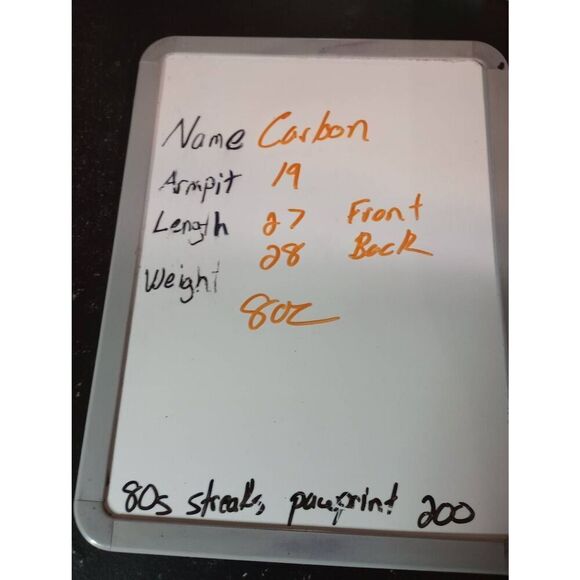 Name Carbon
Armpit 19
Length 27 Front
28 Back
Weight
8oz
80s streaks, pawprint 200